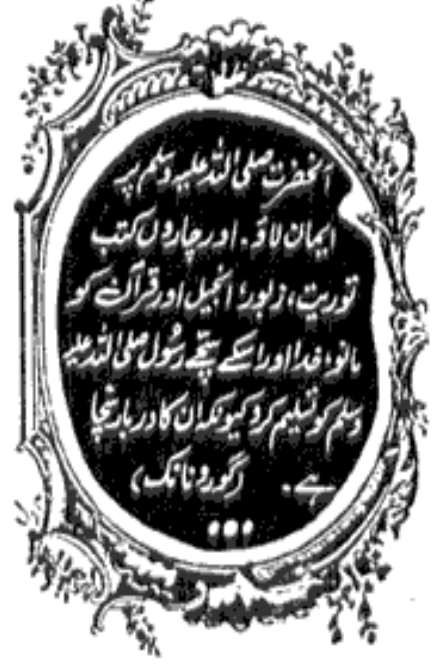 آنحضرت صلی اللہ علیہ وسلم پر
ایمان لاؤ۔ اور چاروں کتب
توریت، زبور، انجیل اور قرآن کو
مانو، خدا اور اسکے سچے رسُول صلی اللہ علیہ
وسلم کو تسلیم کرو کیونکہ ان کا دربار سچا
ہے۔ (گورونانک)